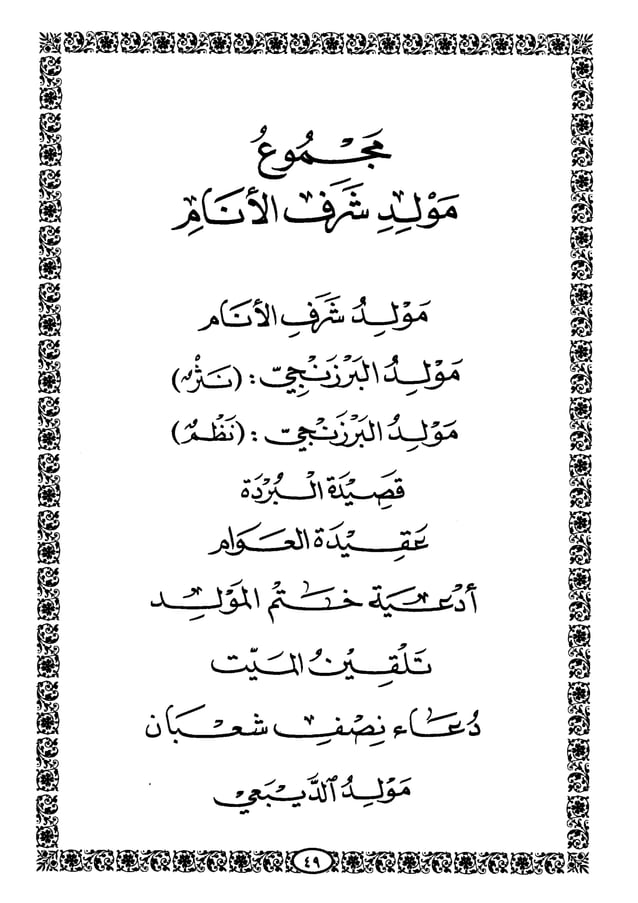 مَجْمُوعُ
مَوْلِدِ شَرَفِ الأَنَامِ
مَوْلِدُ شَرَفِ الأَنَامِ
مَوْلِدُ البَرْزَنْجِيّ : (نَثْرٌ)
مَوْلِدُ البَرْزَنْجِيّ : (نَظْمٌ)
قَصِيْدَة الْبُرْدَة
عَقِيْدَة العَوَام
أدْعِيَة خَتْم المَوْلِد
تَلْقِيْنُ المَيّت
دُعَاء نِصْفِ شَعْبَان
مَوْلِدُ ٱلدَّيْبَعِي
٤٩